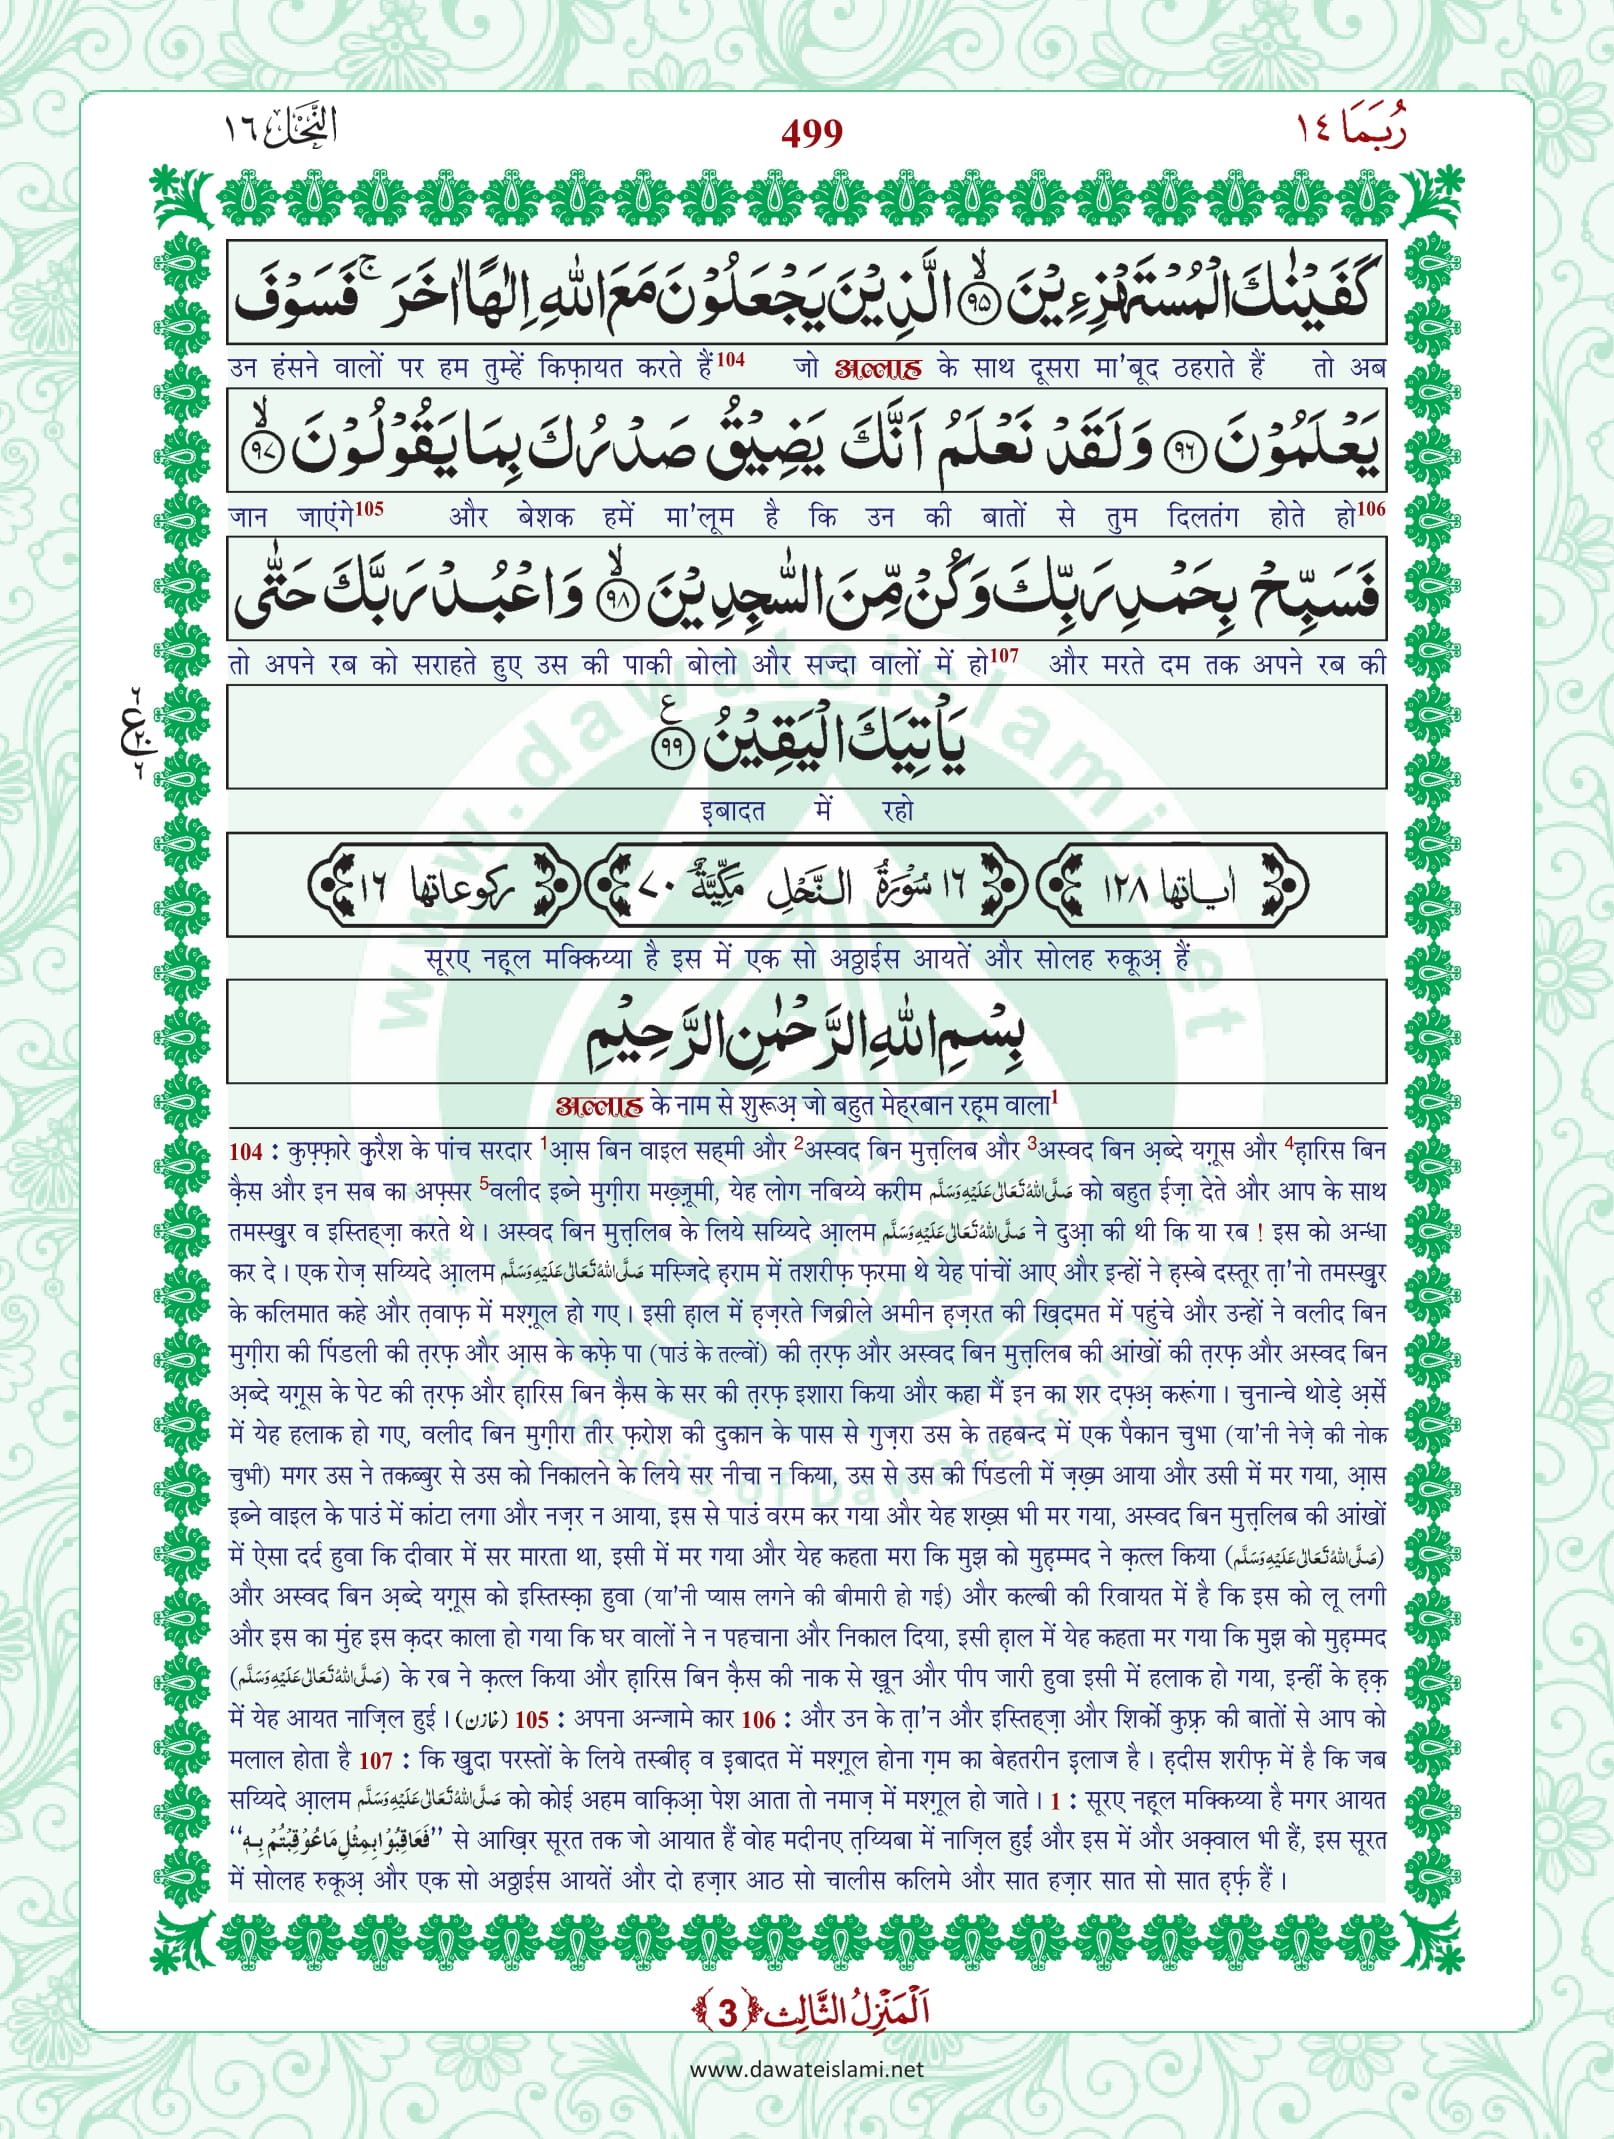 رُبَمَا ١٤
499
النَّحْل ١٦
كَفَيْنٰكَ الْمُسْتَهْزِءِيْنَ ۙ﴿۹۵﴾ الَّذِيْنَ يَجْعَلُوْنَ مَعَ اللّٰهِ اِلٰهًا اٰخَرَ ۚ فَسَوْفَ
उन हंसने वालों पर हम तुम्हें किफ़ायत करते हैं104 जो अल्लाह के साथ दूसरा मा'बूद ठहराते हैं तो अब
يَعْلَمُوْنَ ﴿۹۶﴾ وَلَقَدْ نَعْلَمُ اَنَّكَ يَضِيْقُ صَدْرُكَ بِمَا يَقُوْلُوْنَ ۙ﴿۹۷﴾
जान जाएंगे105 और बेशक हमें मा'लूम है कि उन की बातों से तुम दिलतंग होते हो106
فَسَبِّحْ بِحَمْدِ رَبِّكَ وَكُنْ مِّنَ السّٰجِدِيْنَ ۙ﴿۹۸﴾ وَاعْبُدْ رَبَّكَ حَتّٰى
तो अपने रब को सराहते हुए उस की पाकी बोलो और सज्दा वालों में हो107 और मरते दम तक अपने रब की
يَاْتِيَكَ الْيَقِيْنُ ﴿۹۹﴾ ع
इबादत में रहो
اٰیاتها ١٢٨ ١٦ سُوْرَةُ النَّحْلِ مَكِّيَّةٌ ٧٠ ركوعاتها ١٦
सूरए नह़्ल मक्किय्या है इस में एक सो अठ्ठाईस आयतें और सोलह रुकूअ़ हैं
بِسْمِ اللّٰهِ الرَّحْمٰنِ الرَّحِيْمِ
अल्लाह के नाम से शुरूअ़ जो बहुत मेह्रबान रह़्म वाला1
104 : कुफ़्फ़ारे क़ुरैश के पांच सरदार 1आ़स बिन वाइल सह्मी और 2अस्वद बिन मुत्त़लिब और 3अस्वद बिन अ़ब्दे यग़ूस और 4ह़ारिस बिन
क़ैस और इन सब का अफ़्सर 5वलीद इब्ने मुग़ीरा मख़्ज़ूमी, येह लोग नबिय्ये करीम صَلَّى اللهُ تَعَالٰى عَلَيْهِ وَسَلَّم को बहुत ईज़ा देते और आप के साथ
तमस्ख़ुर व इस्तिह्ज़ा करते थे । अस्वद बिन मुत्त़लिब के लिये सय्यिदे आ़लम صَلَّى اللهُ تَعَالٰى عَلَيْهِ وَسَلَّم ने दुआ़ की थी कि या रब ! इस को अन्धा
कर दे । एक रोज़ सय्यिदे आ़लम صَلَّى اللهُ تَعَالٰى عَلَيْهِ وَسَلَّم मस्जिदे ह़राम में तशरीफ़ फ़रमा थे येह पांचों आए और इन्हों ने ह़स्बे दस्तूर त़ा'नो तमस्ख़ुर
के कलिमात कहे और त़वाफ़ में मश्ग़ूल हो गए । इसी ह़ाल में ह़ज़रते जिब्रीले अमीन ह़ज़रत की ख़िदमत में पहुंचे और उन्हों ने वलीद बिन
मुग़ीरा की पिंडली की त़रफ़ और आ़स के कफ़े पा (पाउं के तल्वों) की त़रफ़ और अस्वद बिन मुत्त़लिब की आंखों की त़रफ़ और अस्वद बिन
अ़ब्दे यग़ूस के पेट की त़रफ़ और ह़ारिस बिन क़ैस के सर की त़रफ़ इशारा किया और कहा मैं इन का शर दफ़्अ़ करूंगा । चुनान्चे थोड़े अ़र्से
में येह हलाक हो गए, वलीद बिन मुग़ीरा तीर फ़रोश की दुकान के पास से गुज़रा उस के तहबन्द में एक पैकान चुभा (या'नी नेज़े की नोक
चुभी) मगर उस ने तकब्बुर से उस को निकालने के लिये सर नीचा न किया, उस से उस की पिंडली में ज़ख़्म आया और उसी में मर गया, आ़स
इब्ने वाइल के पाउं में कांटा लगा और नज़र न आया, इस से पाउं वरम कर गया और येह शख़्स भी मर गया, अस्वद बिन मुत्त़लिब की आंखों
में ऐसा दर्द हुवा कि दीवार में सर मारता था, इसी में मर गया और येह कहता मरा कि मुझ को मुह़म्मद ने क़त्ल किया (صَلَّى اللهُ تَعَالٰى عَلَيْهِ وَسَلَّم)
और अस्वद बिन अ़ब्दे यग़ूस को इस्तिस्क़ा हुवा (या'नी प्यास लगने की बीमारी हो गई) और कल्बी की रिवायत में है कि इस को लू लगी
और इस का मुंह इस क़दर काला हो गया कि घर वालों ने न पहचाना और निकाल दिया, इसी ह़ाल में येह कहता मर गया कि मुझ को मुह़म्मद
(صَلَّى اللهُ تَعَالٰى عَلَيْهِ وَسَلَّم) के रब ने क़त्ल किया और ह़ारिस बिन क़ैस की नाक से ख़ून और पीप जारी हुवा इसी में हलाक हो गया, इन्हीं के ह़क़
में येह आयत नाज़िल हुई । (خازن) 105 : अपना अन्जामे कार 106 : और उन के त़ा'न और इस्तिह्ज़ा और शिर्को कुफ़्र की बातों से आप को
मलाल होता है 107 : कि ख़ुदा परस्तों के लिये तस्बीह़ व इ़बादत में मश्ग़ूल होना ग़म का बेहतरीन इलाज है । ह़दीस शरीफ़ में है कि जब
सय्यिदे आ़लम صَلَّى اللهُ تَعَالٰى عَلَيْهِ وَسَلَّم को कोई अहम वाक़िआ़ पेश आता तो नमाज़ में मश्ग़ूल हो जाते । 1 : सूरए नह़्ल मक्किय्या है मगर आयत
"فَعَاقِبُوْا بِمِثْلِ مَا عُوْقِبْتُمْ بِهٖ" से आख़िर सूरत तक जो आयात हैं वोह मदीनए त़य्यिबा में नाज़िल हुईं और इस में और अक़्वाल भी हैं, इस सूरत
में सोलह रुकूअ़ और एक सो अठ्ठाईस आयतें और दो हज़ार आठ सो चालीस कलिमे और सात हज़ार सात सो सात ह़र्फ़ हैं ।
اَلْمَنْزِلُ الثَّالِث ﴿3﴾
www.dawateislami.net